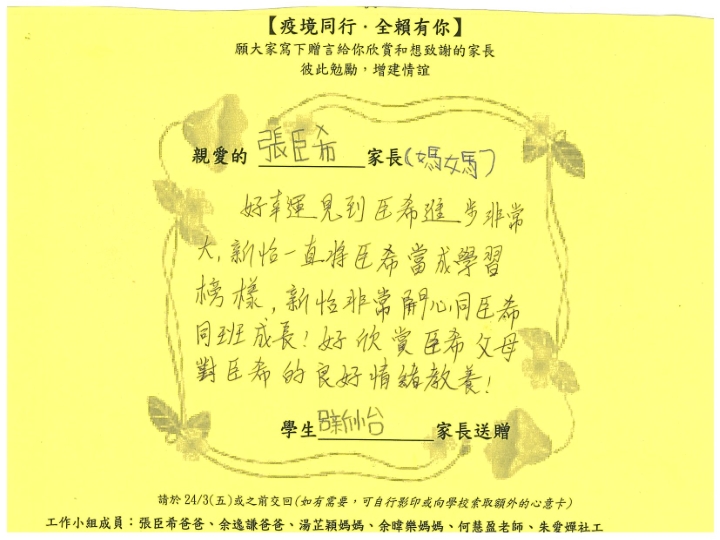 【疫境同行．全賴有你】
願大家寫下贈言給你欣賞和想致謝的家長
彼此勉勵，增建情誼
親愛的 張臣希 家長(媽媽)
好幸運見到臣希進步非常
大, 新怡一直將臣希當成學習
榜樣, 新怡非常開心同臣希
同班成長! 好欣賞臣希父母
對臣希的良好情緒教養!
學生 新怡 家長送贈
請於 24/3(五)或之前交回(如有需要，可自行影印或向學校索取額外的心意卡)
工作小組成員：張臣希爸爸、余逸謙爸爸、湯芷穎媽媽、余暐樂媽媽、何慧盈老師、朱愛嬋社工